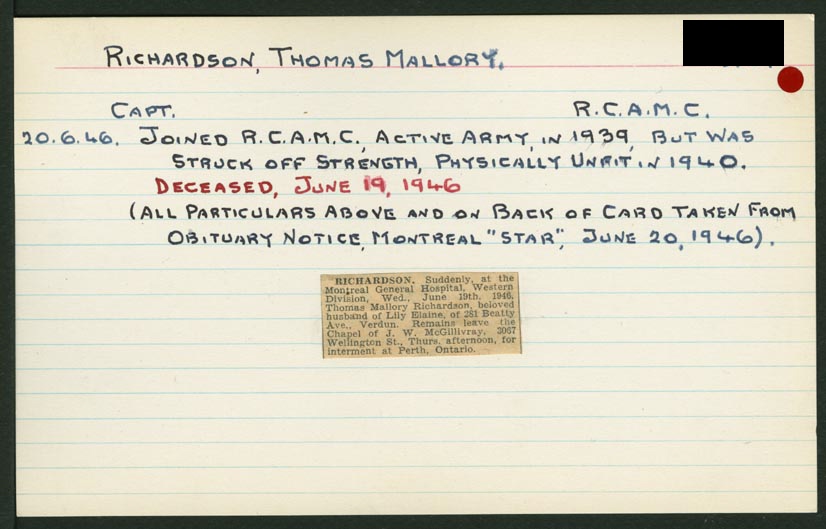 RICHARDSON, THOMAS MALLORY.
CAPT. R.C.A.M.C.
20.6.46. JOINED R.C.A.M.C., ACTIVE ARMY, IN 1939, BUT WAS
STRUCK OFF STRENGTH, PHYSICALLY UNFIT IN 1940.
DECEASED, JUNE 19, 1946
(ALL PARTICULARS ABOVE AND ON BACK OF CARD TAKEN FROM
OBITUARY NOTICE, MONTREAL "STAR", JUNE 20, 1946).
RICHARDSON. Suddenly, at the
Montreal General Hospital, Western
Division, Wed., June 19th. 1946,
Thomas Mallory Richardson, beloved
husband of Lily Elaine, of 281 Beatty
Ave., Verdun. Remains leave the
Chapel of J. W. McGillivray, 3967
Wellington St., Thurs. afternoon, for
interment at Perth, Ontario.